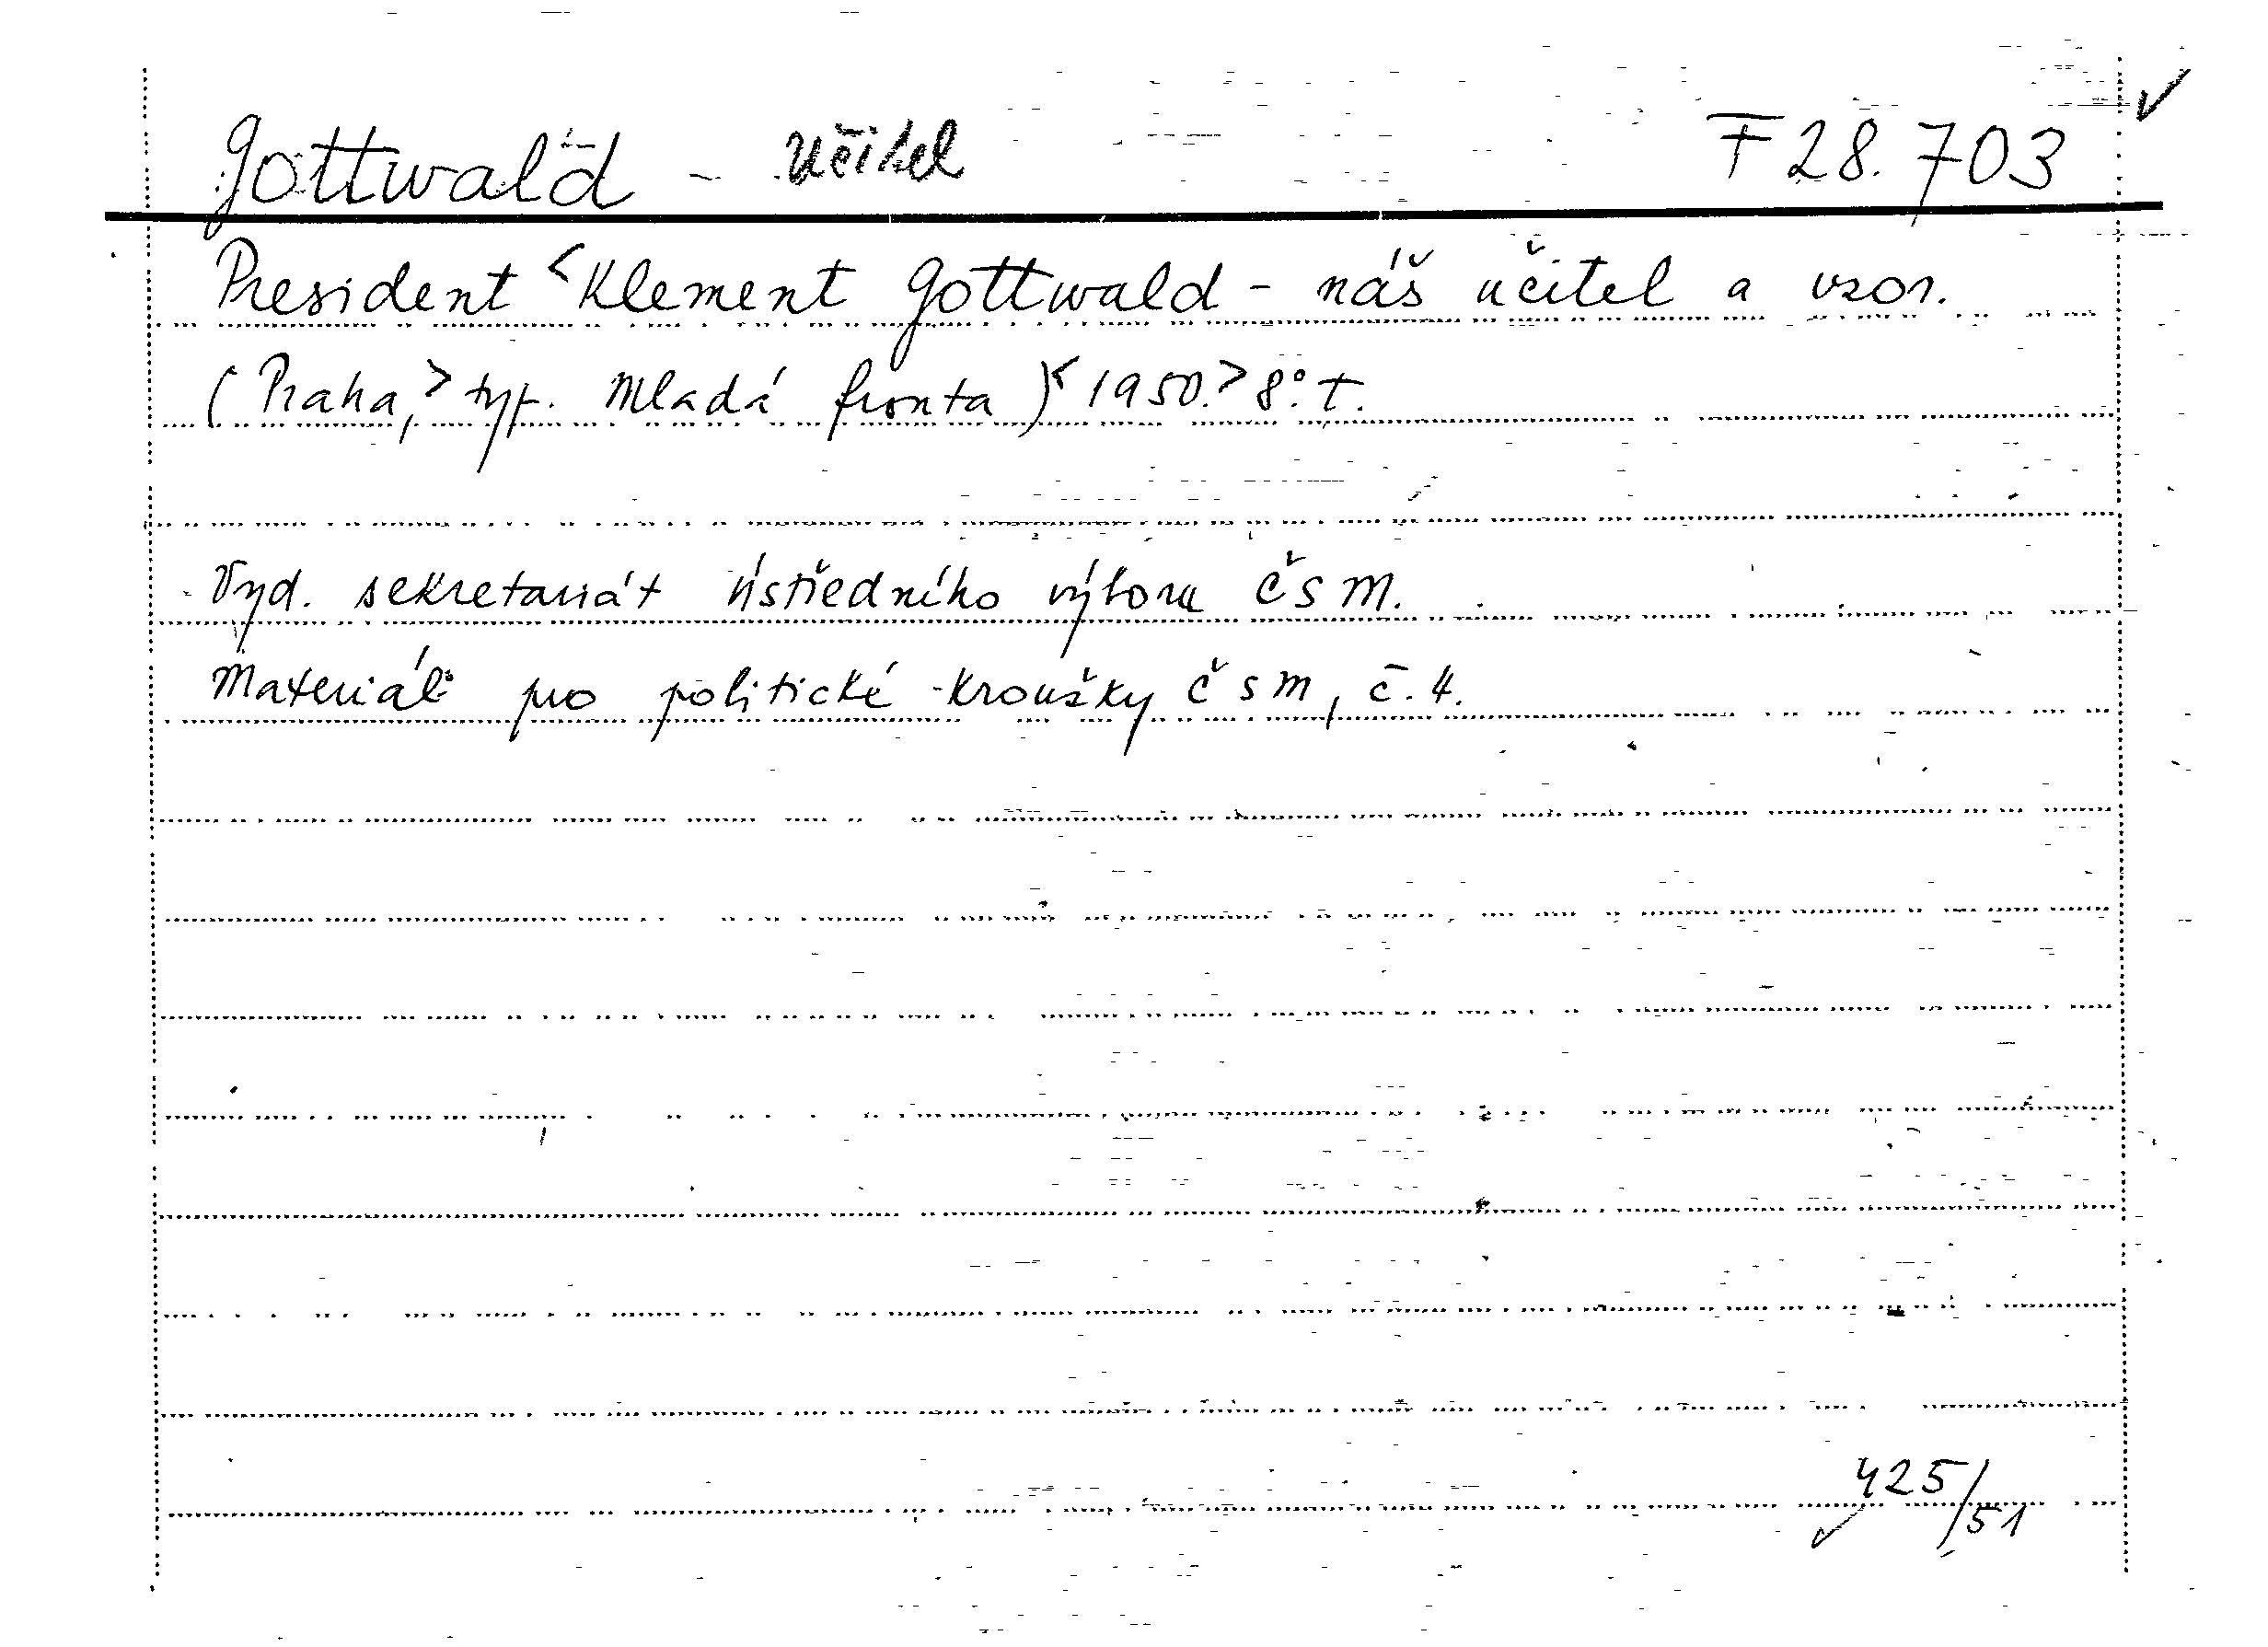 Gottwald - Učitel F 28.703
President <Klement Gottwald - náš učitel a vzor.
(Praha,> typ. Mladá fronta)< 1950.> 8°. T.
Vyd. sekretariát ústředního výboru ČSM.
Materiál pro politické kroužky ČSM, č. 4.
425/51